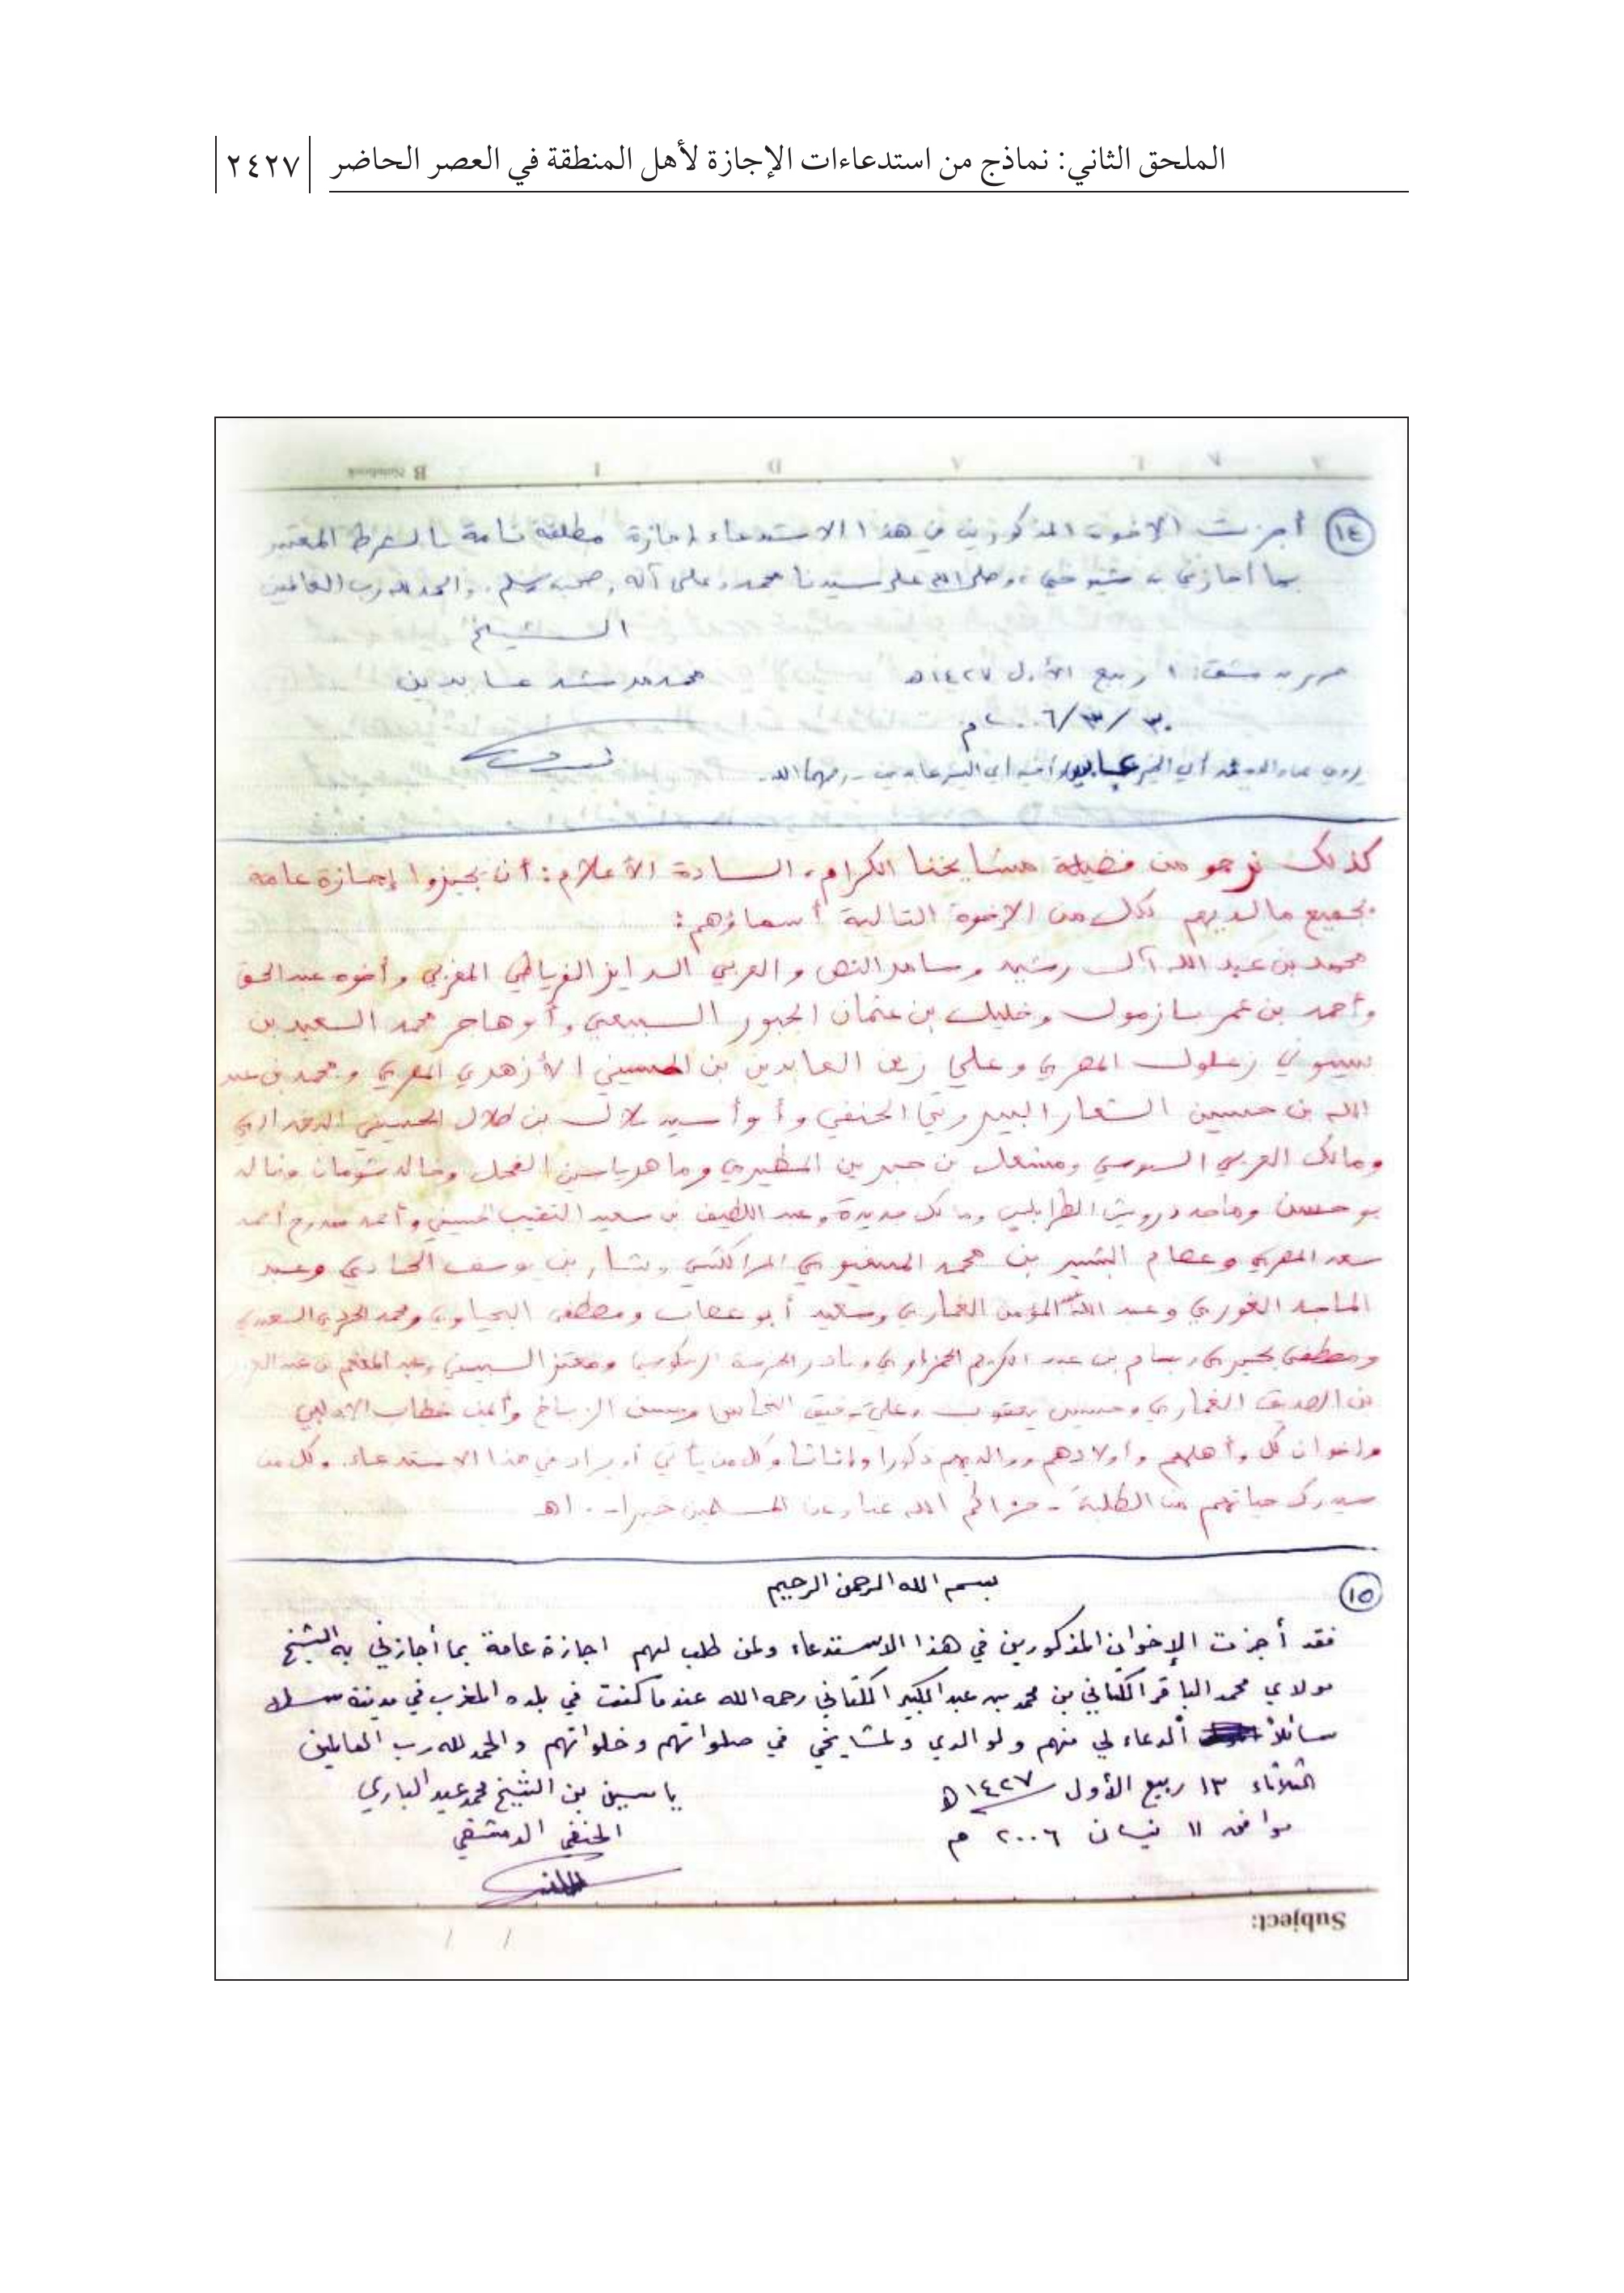 الملحق الثاني: نماذج من استدعاءات الإجازة لأهل المنطقة في العصر الحاضر
٢٤٢٧
B Notebook
١٤ أجزت الإخوة المذكورين في هذا الاستدعاء إجازة مطلقة تامة بالشرط المعتبر
بما أجازني به شيوخي، وصلى الله على سيدنا محمد وعلى آله وصحبه وسلم، والحمد لله رب العالمين
الشيخ
١ ربيع الأول ١٤٢٧ هـ
محمد مرشد عابدين
٣٠/٣/٢٠٠٦ م
أبي الخير عابدين أبي اليسر عابدين - رحمهما الله -
كذلك نرجو من فضيلة مشايخنا الكرام، السادة الأعلام: أن يجيزوا إجازة عامة
بجميع ما لديهم لكل من الإخوة التالية أسماؤهم:
محمد بن عبد الله آل رشيد و والعربي الدايز الفرياطي المغربي وأخوه عبد الحق
وأحمد بن عمر بازمول وخليل بن عثمان الجبور السبيعي وأبو هاجر محمد السعيد بن
بسيوني زغلول المصري وعلي زين العابدين بن الحسيني الأزهري المصري ومحمد بن عبد
الله بن حسين الشعار البيروتي الحنفي و بلال بن طلال الحسيني
ومالك العربي السنوسي ومشعل بن المطيري وماهر ياسين الفحل وخالد شومان وخالد
بو حسن وماجد درويش الطرابلسي ومالك جديدة وعبد اللطيف بن سعيد النقيب الحسيني وأحمد ممدوح أحمد
سعد المصري وعصام البشير بن محمد المسفيوي المراكشي و بن يوسف الحادي وعبد
الماجد الغوري وعبد الله عبد المؤمن الغماري وسعيد أبو عصاب ومصطفى
ومصطفى وبسام بن عبد الكريم الحمزاوي و ومعتز السبيني وعبد المنعم بن عبد العزيز
بن الصديق الغماري وحسين يعقوب وعلي توفيق النحاس و وأيمن خطاب
وإخوان كل وأهلهم وأولادهم ووالديهم ذكورا وإناثا وكل من يأتي أو يراد في هذا الاستدعاء، وكل من
سيدرك حياتهم من الطلبة - جزاكم الله عنا وعن المسلمين خيرا - . اهـ
١٥
بسم الله الرحمن الرحيم
فقد أجزت الإخوان المذكورين في هذا الاستدعاء ولمن طلب لهم اجازة عامة بما أجازني به الشيخ
مولاي محمد الباقر الكتاني بن محمد بن عبد الكبير الكتاني رحمه الله عندما كنت في بلده المغرب في مدينة سلا
سائلاً الدعاء لي منهم ولوالدي ولمشايخي في صلواتهم وخلواتهم والحمد لله رب العالمين
الثلاثاء ١٣ ربيع الأول ١٤٢٧ هـ
ياسين بن الشيخ محمد عبد الباري
موافق ١١ نيسان ٢٠٠٦ م
الحنفي الدمشقي
Subject: